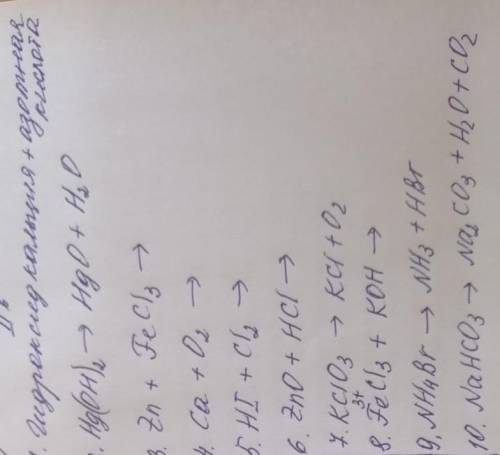 1. Гидроксид кальция + азотная
кислота
2. Hg(OH)2 → HgO + H2O
3. Zn + FeCl3 →
4. Ca + O2 →
5. HI + Cl2 →
6. ZnO + HCl →
7. KClO3 → KCl + O2
3+
8. FeCl3 + KOH →
9. NH4Br → NH3 + HBr
10. NaHCO3 → Na2CO3 + H2O + CO2